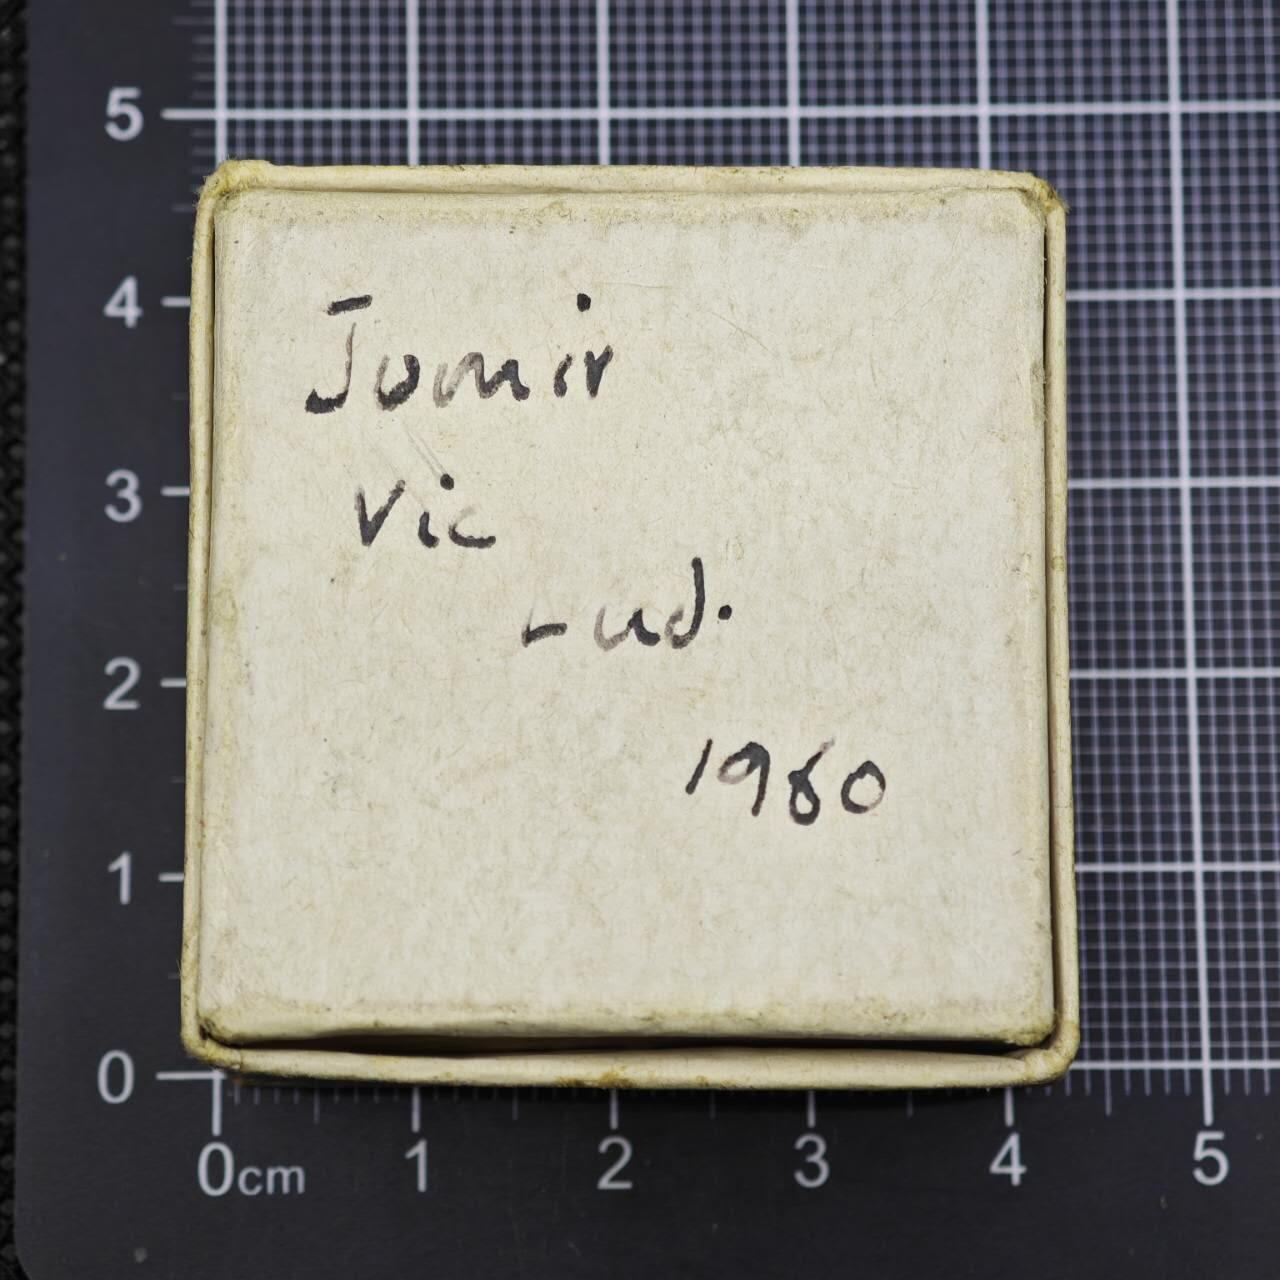 5
4
Jomir
3
Vic
Lud.
2
1960
1
0
0cm 1 2 3 4 5